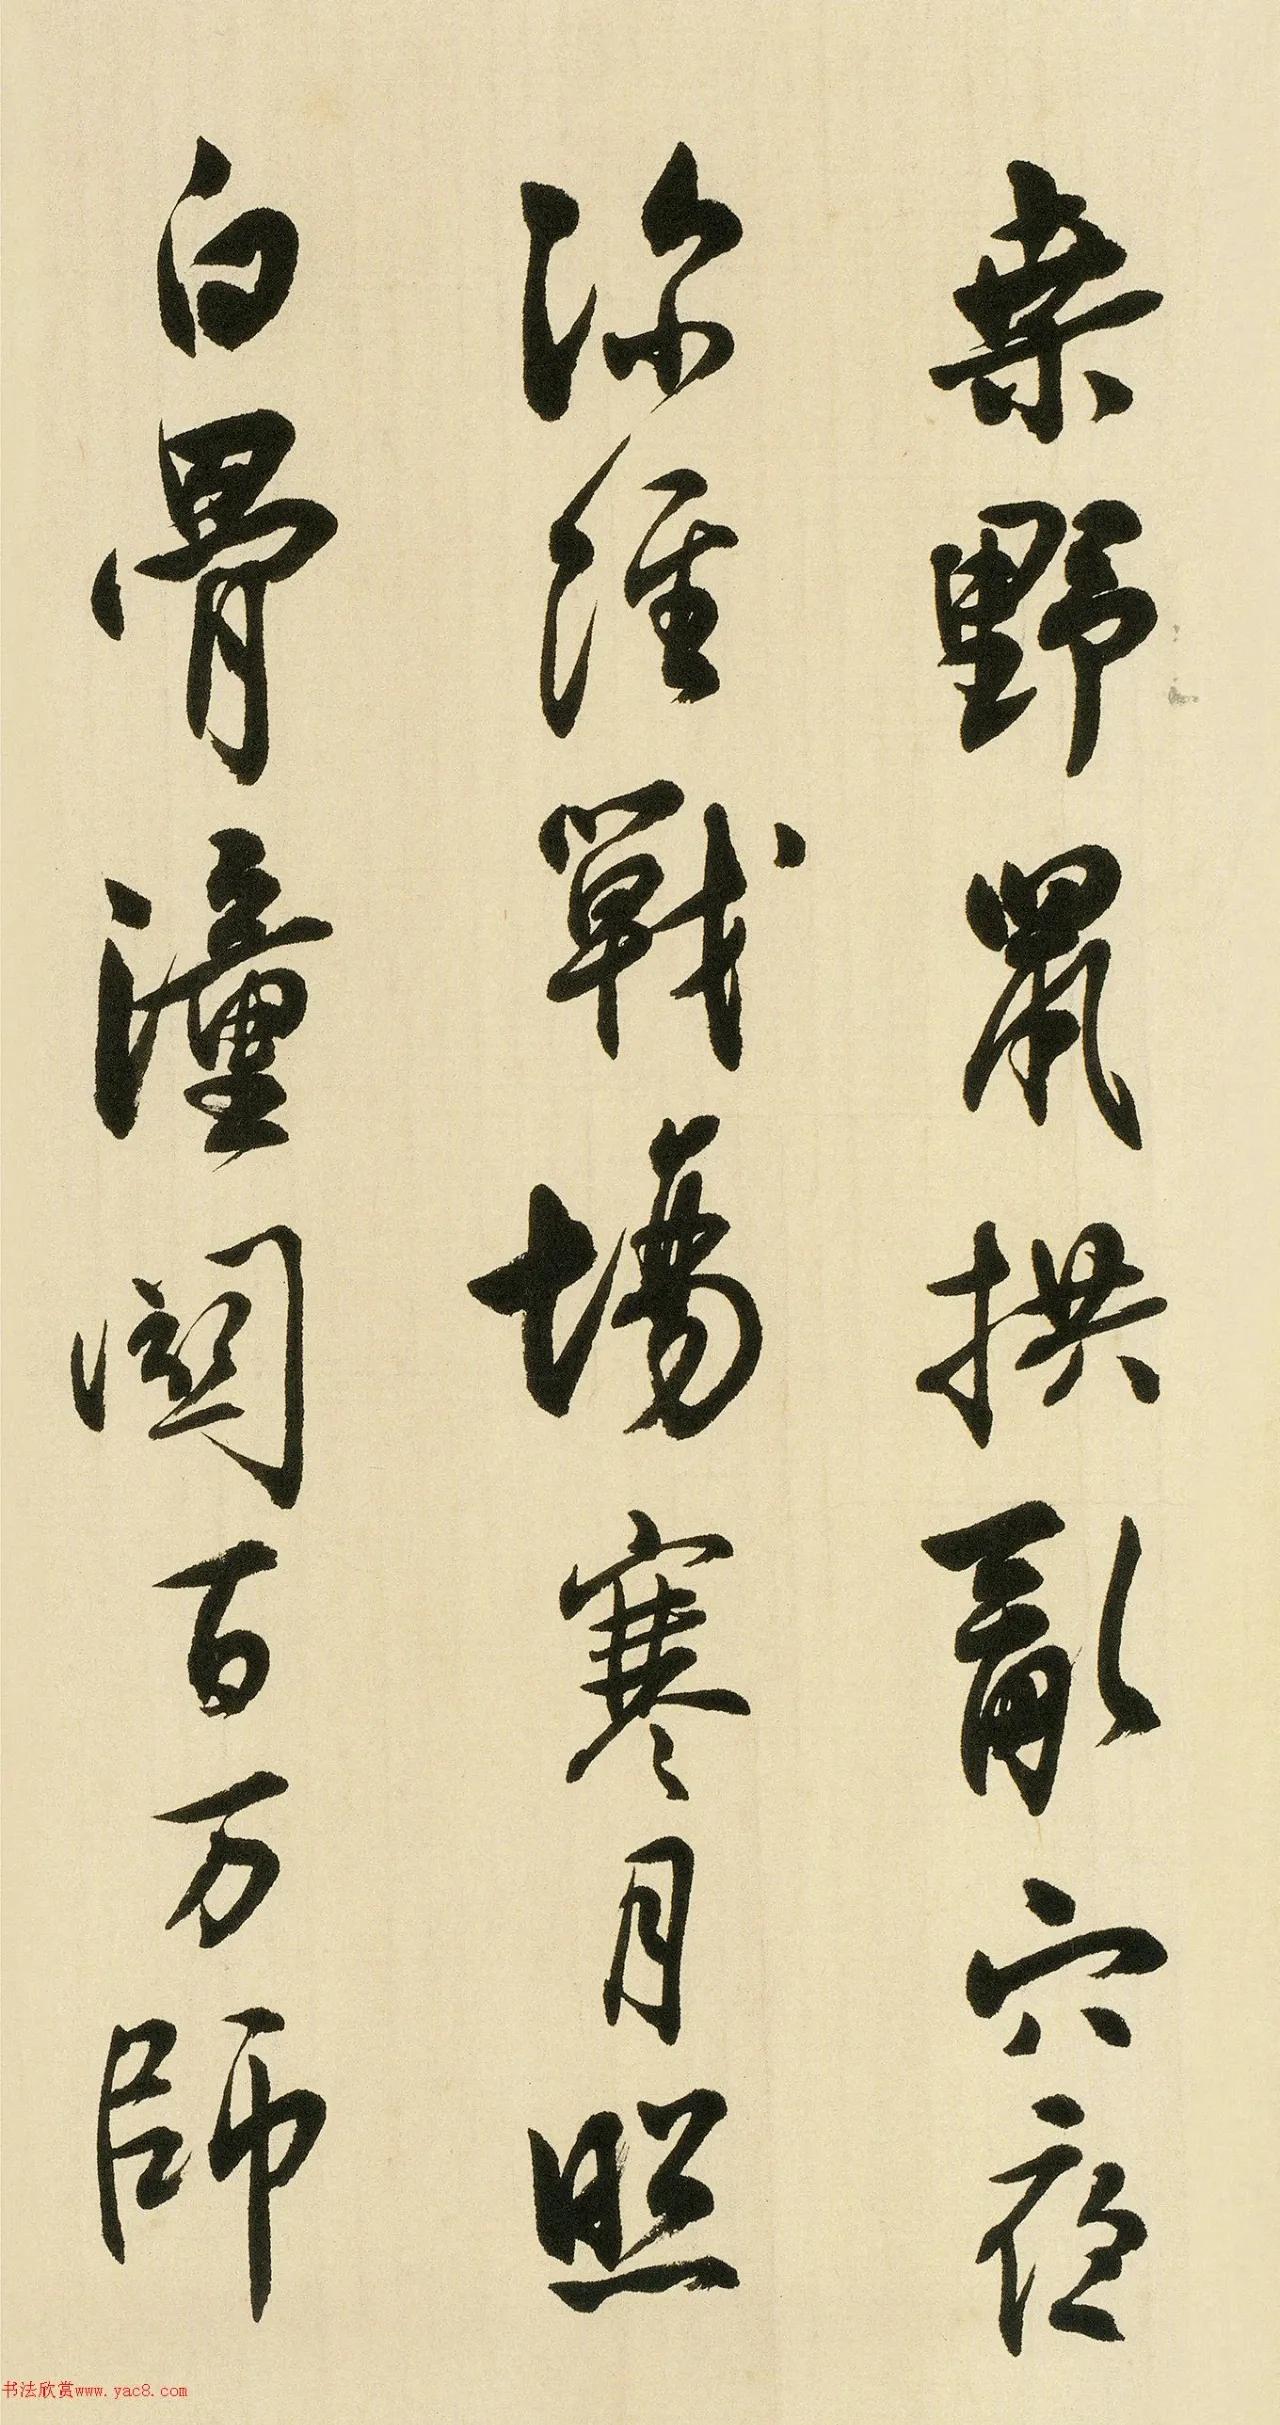 桒野鼠拱亂穴夜
深經戰場寒月照
白骨潼関百万師
书法欣赏www.yac8.com